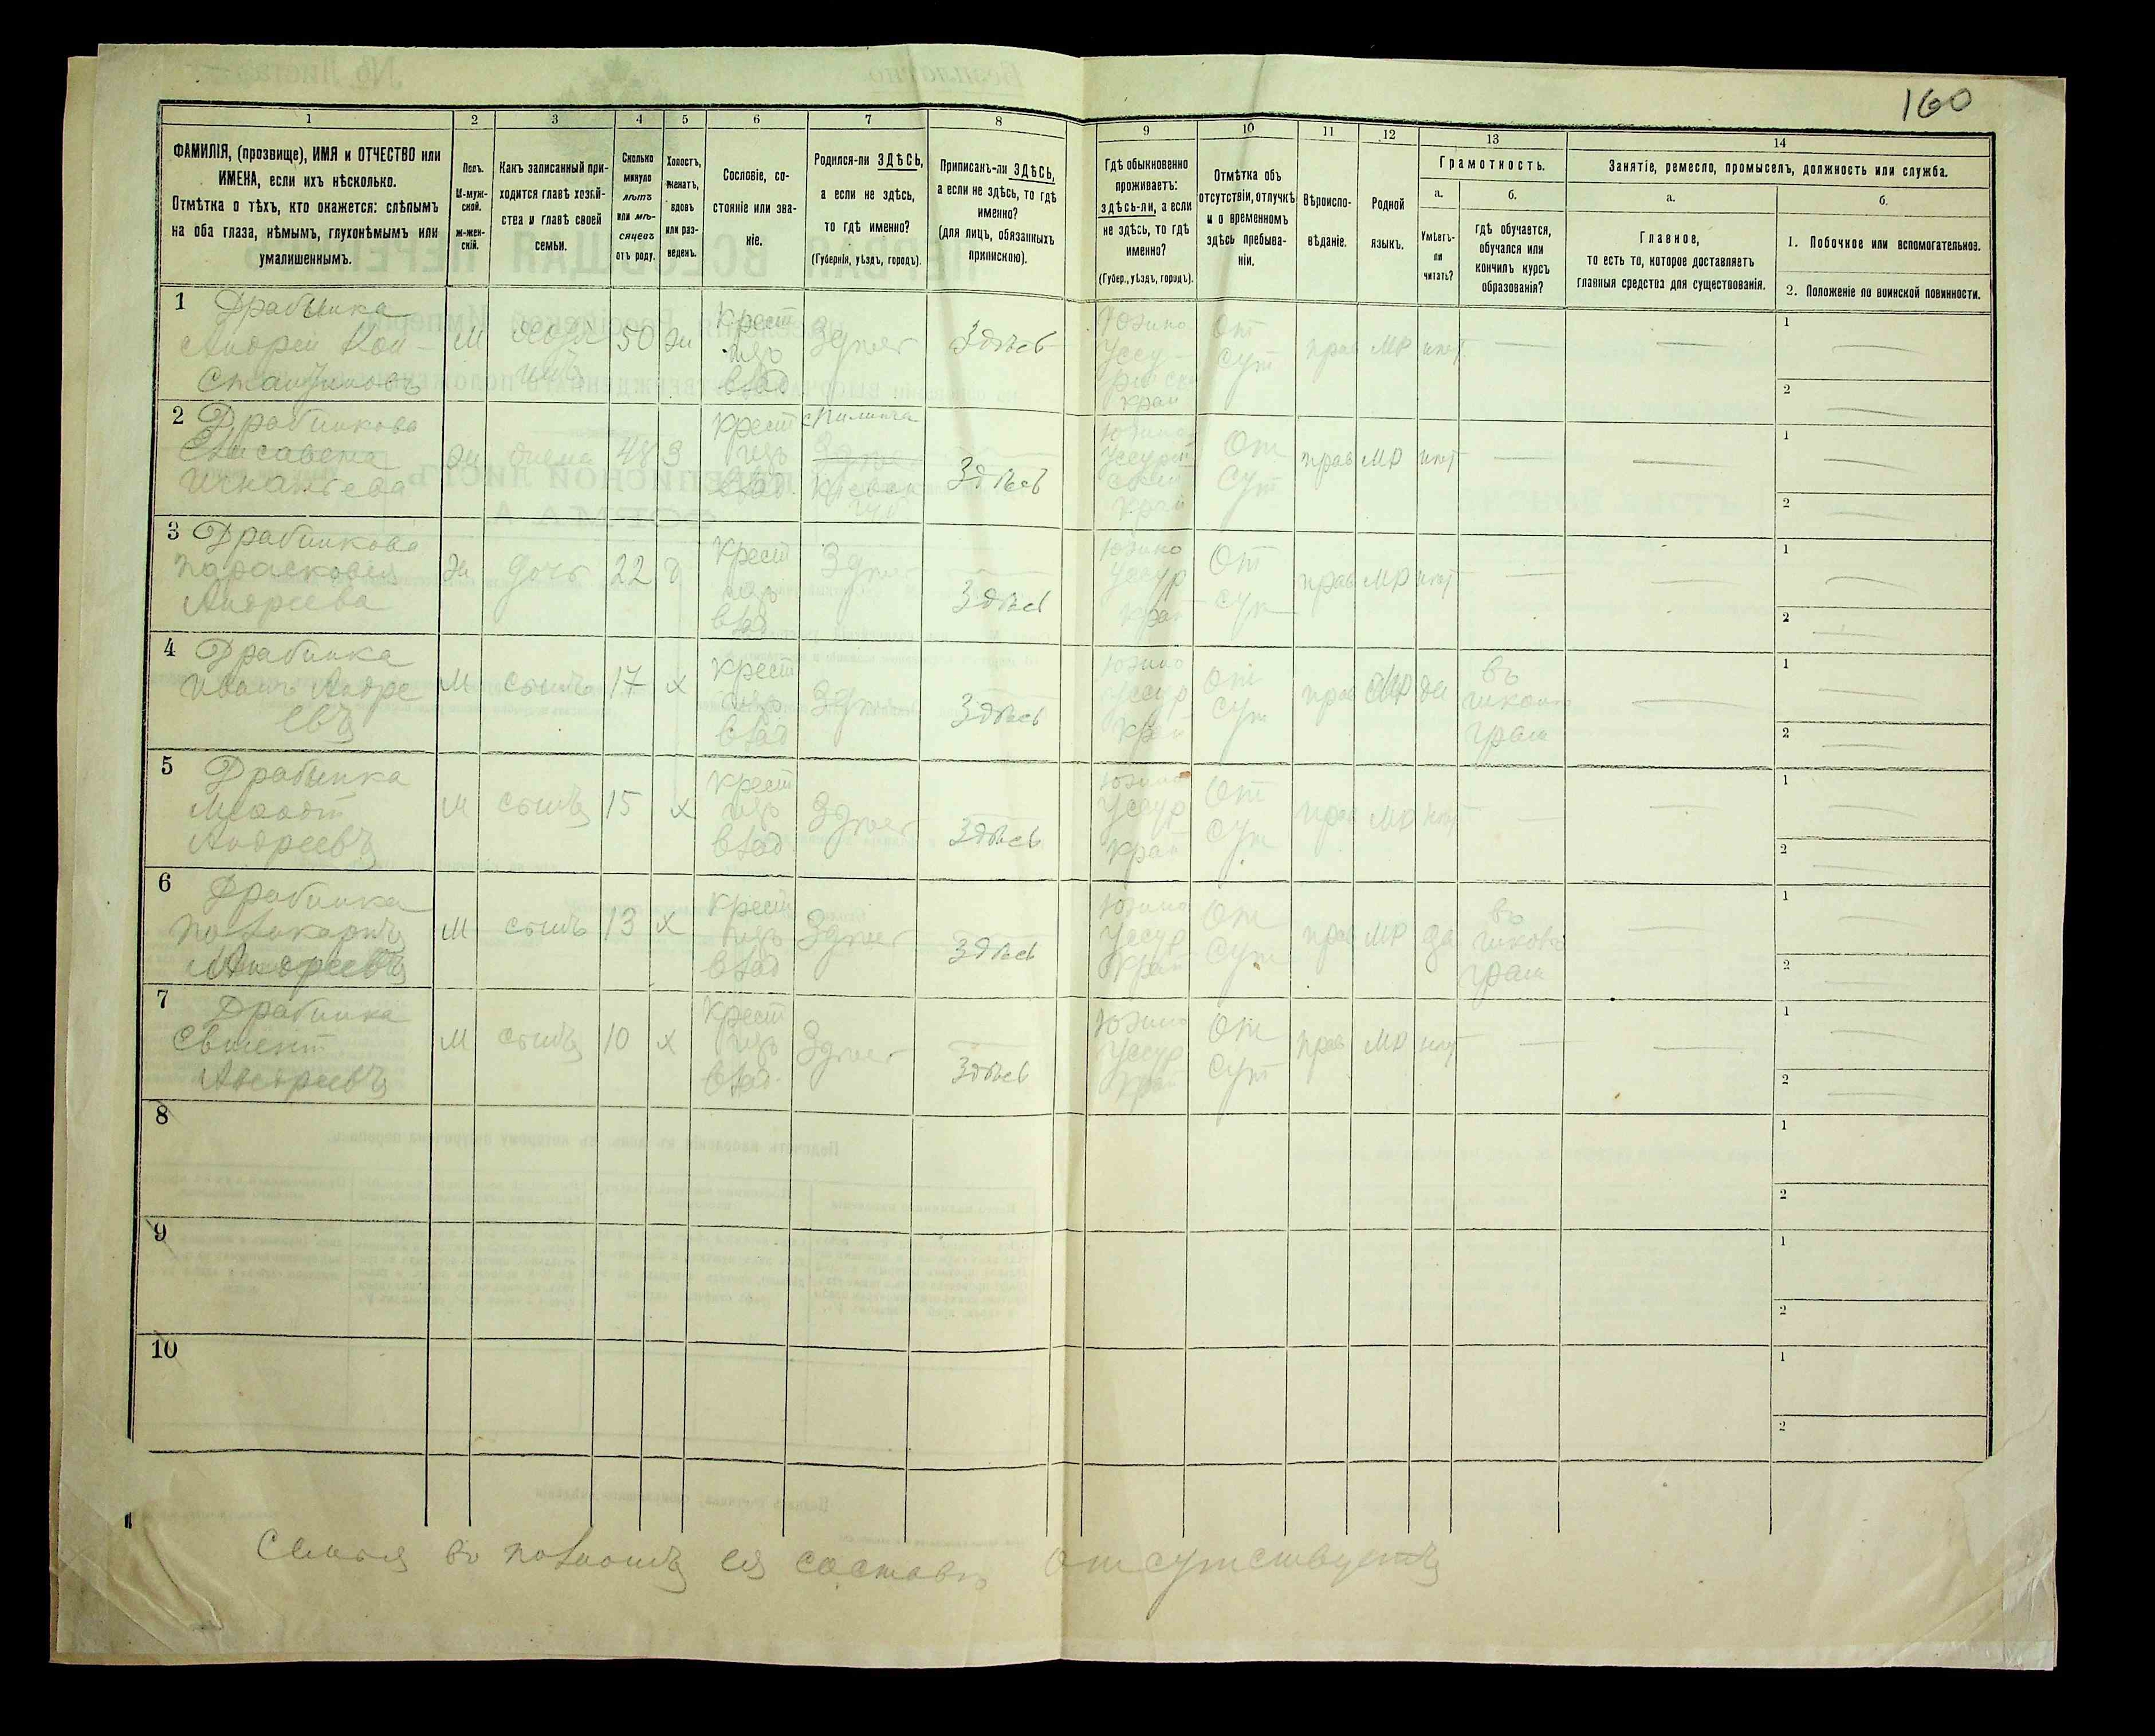 160
1
2
3
4
5
6
7
8
9
10
11
12
13
14
ФАМИЛІЯ, (прозвище), ИМЯ и ОТЧЕСТВО или
ИМЕНА, если ихъ нѣсколько.
Отмѣтка о тѣхъ, кто окажется: слѣпымъ
на оба глаза, нѣмымъ, глухонѣмымъ или
умалишеннымъ.
Полъ.
М-муж-
ской.
Ж-жен-
скій.
Какъ записанный при-
ходится главѣ хозяй-
ства и главѣ своей
семьи.
Сколько
минуло
лѣтъ
или мѣ-
сяцевъ
отъ роду.
Холостъ,
женатъ,
вдовъ
или раз-
веденъ.
Сословіе, со-
стояніе или зва-
ніе.
Родился-ли ЗДѢСЬ,
а если не здѣсь,
то гдѣ именно?
(Губернія, уѣздъ, городъ).
Приписанъ-ли ЗДѢСЬ,
а если не здѣсь, то гдѣ
именно?
(для лицъ, обязанныхъ
припискою).
Гдѣ обыкновенно
проживаетъ:
здѣсь-ли, а если
не здѣсь, то гдѣ
именно?
(Губер., уѣздъ, городъ).
Отмѣтка объ
отсутствіи, отлучкѣ
и о временномъ
здѣсь пребыва-
ніи.
Вѣроиспо-
вѣданіе.
Родной
языкъ.
Грамотность.
а.
Умѣетъ-
ли
читать?
б.
гдѣ обучается,
обучался или
кончилъ курсъ
образованія?
Занятіе, ремесло, промыселъ, должность или служба.
а.
Главное,
то есть то, которое доставляетъ
главныя средства для существованія.
б.
1. Побочное или вспомогательное.
2. Положеніе по воинской повинности.
1 Драбинка
Андрей Кон-
стантиновъ
М
хозя
инъ
50
жн
крест
изъ
влад
Здѣсь
Здѣсь
Южно
Уссу-
рійскій
край
От
сут
прав
МР
нѣт
1
2
2 Драбинкова
Елисавета
Игнатьева
жн
жена
48
З
крест
изъ
влад.
Здѣсь
Кіевск
губ
Здѣсь
Южно
Уссурій
скій
край
От
сут
прав
МР
нѣт
1
2
3 Драбинкова
Парасковія
Андреева
жн
дочь
22
д
крест
изъ
влад
Здѣсь
Здѣсь
Южно
Уссур
край
От
сут
прав
МР
нѣт
1
2
4 Драбинка
Иванъ Андре
евъ
М
сынъ
17
х
крест
изъ
влад
Здѣсь
Здѣсь
Южно
Уссур
край
От
сут
прав
МР
да
въ
школѣ
грам
1
2
5 Драбинка
Андреевъ
М
сынъ
15
х
крест
изъ
влад
Здѣсь
Здѣсь
Южно
Уссур
край
От
сут
прав
МР
нѣт
1
2
6 Драбинка
Поликарпъ
Андреевъ
М
сынъ
13
х
крест
изъ
влад
Здѣсь
Здѣсь
Южно
Уссур
край
От
сут
прав
МР
да
въ
школѣ
грам
1
2
7 Драбинка
Андреевъ
М
сынъ
10
х
крест
изъ
влад.
Здѣсь
Здѣсь
Южно
Уссур
край
От
сут
прав
МР
нѣт
1
2
8
1
2
9
1
2
10
1
2
Семья въ полномъ ея составѣ отсутствуетъ